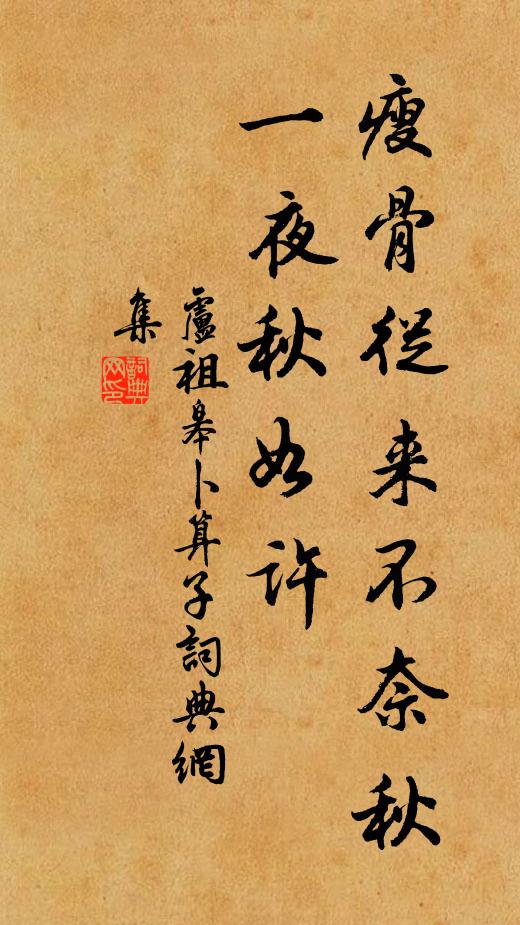 瘦骨從来不奈秋
一夜秋如許
盧祖皋卜算子詞典網
集
詞典
网印